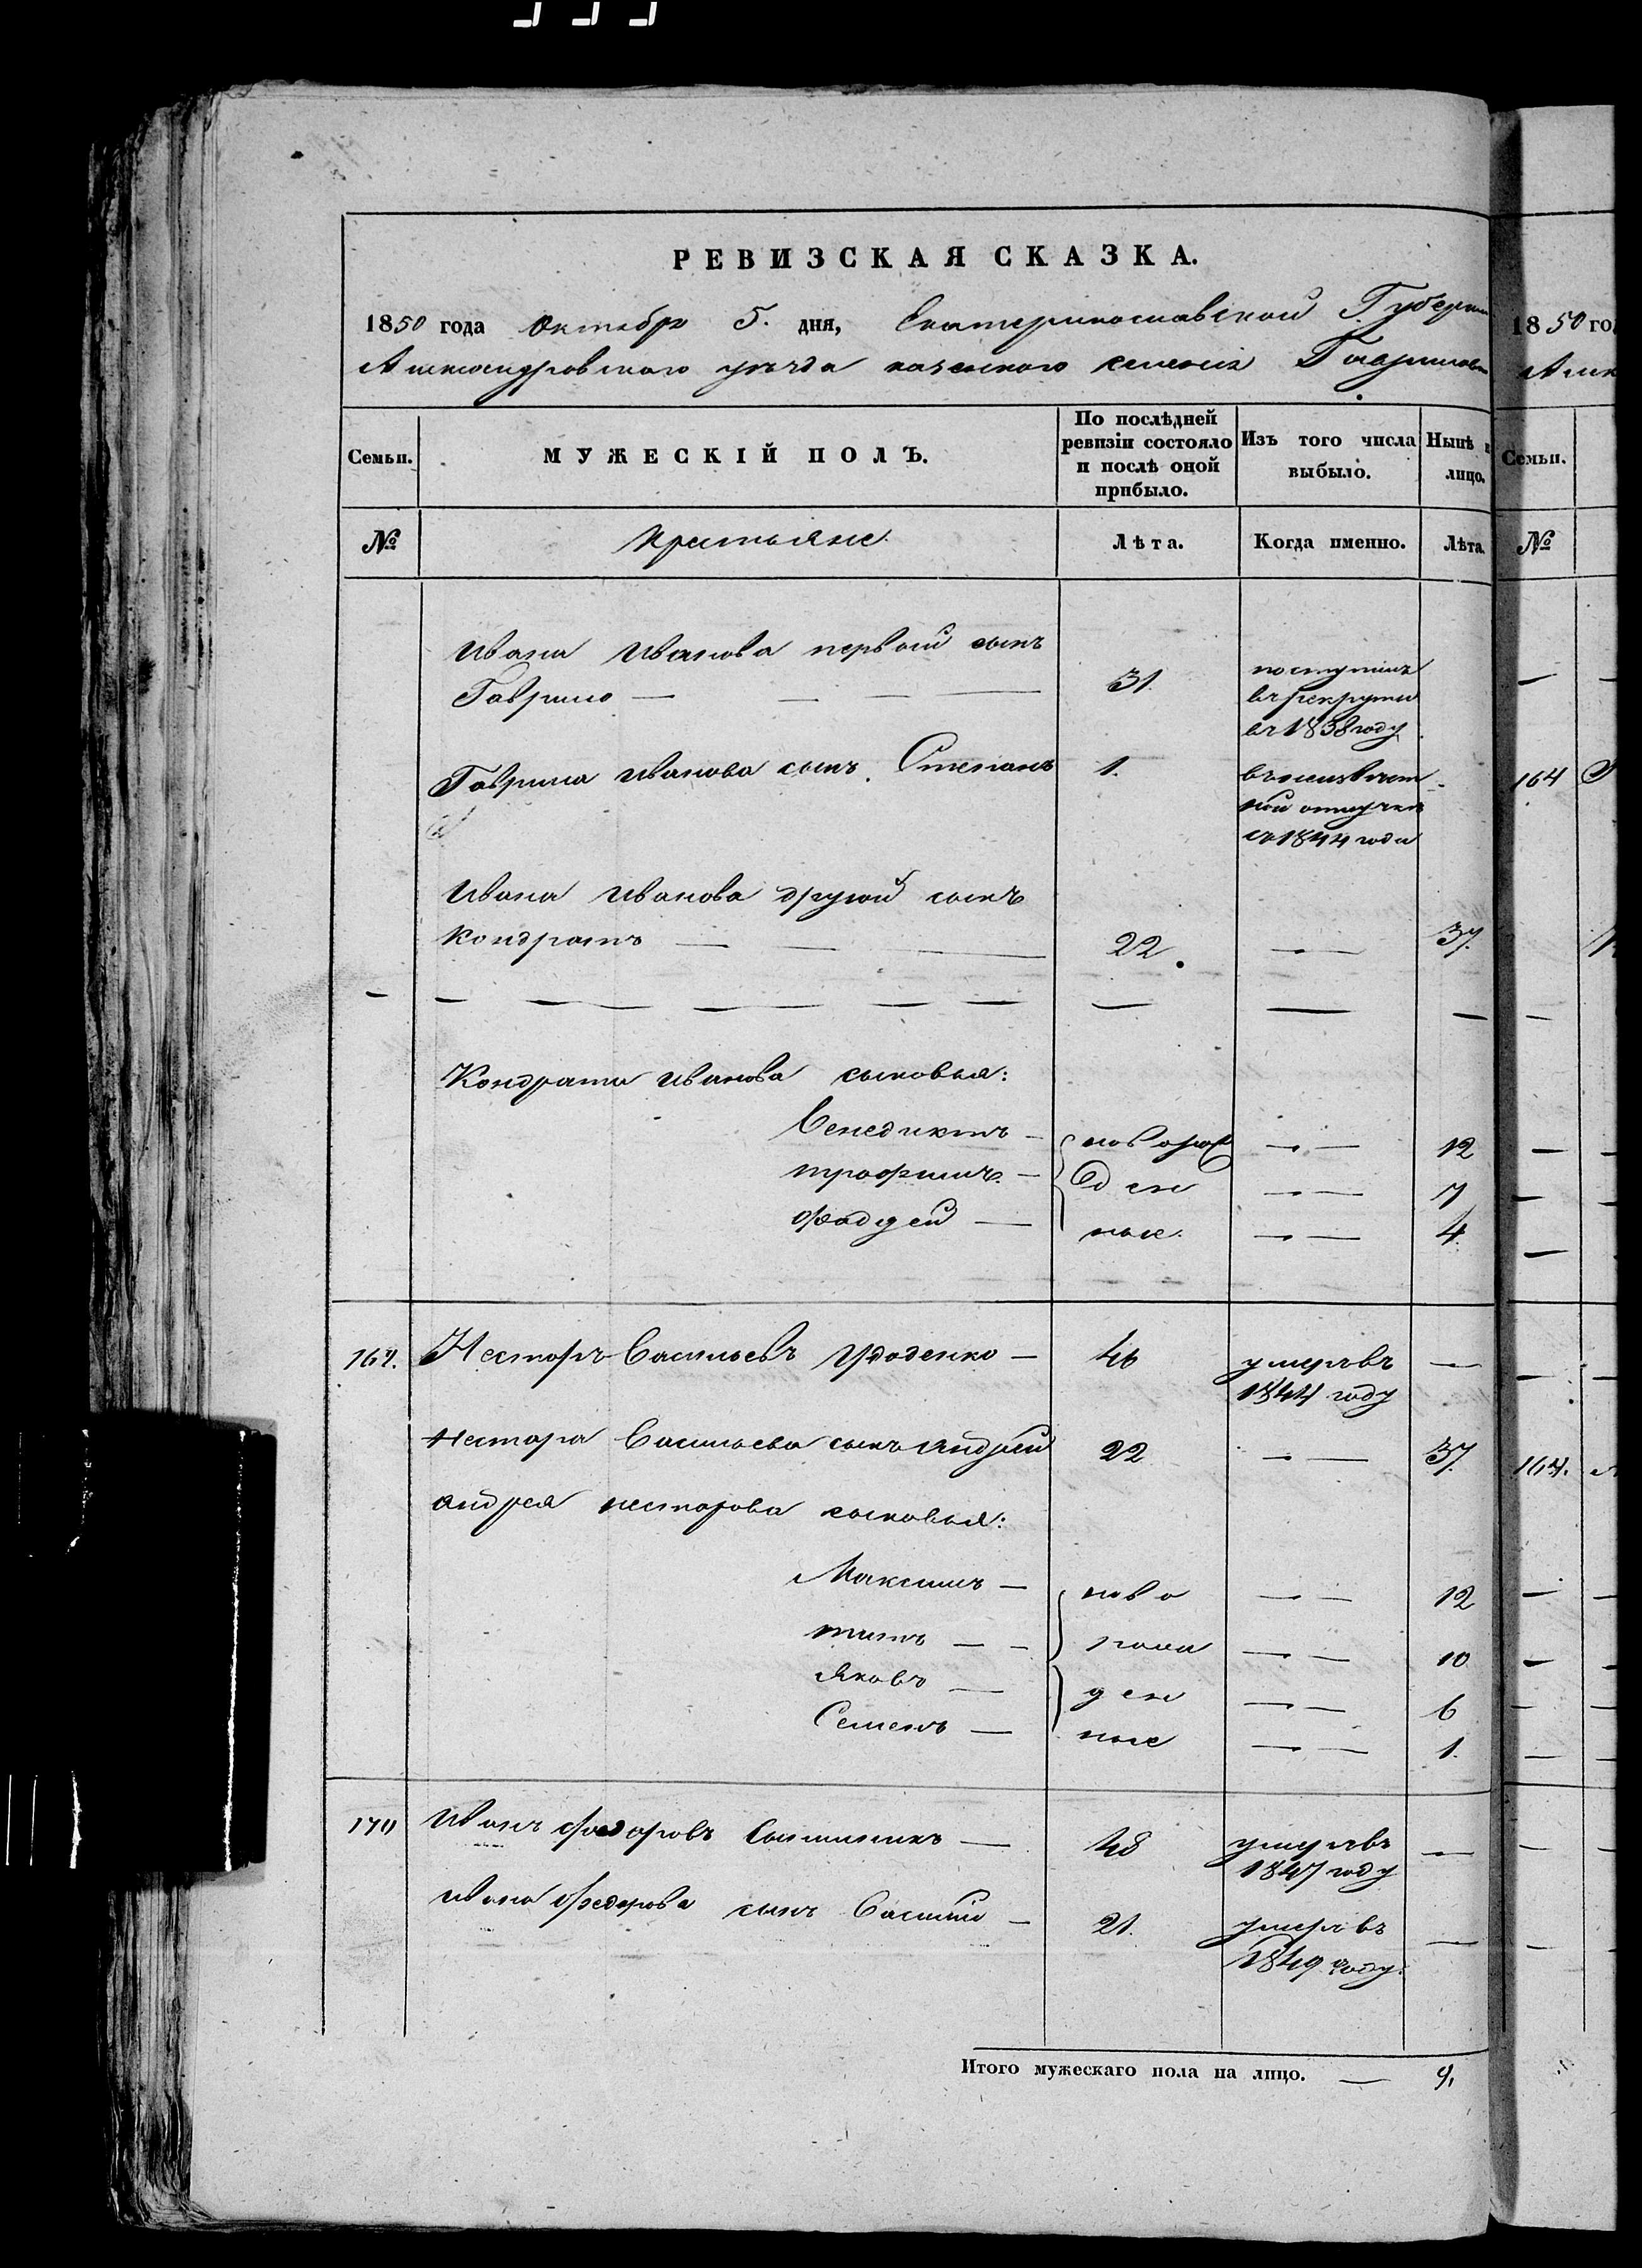 РЕВИЗСКАЯ СКАЗКА.
1850 года Октября 5. дня, Екатеринославской Губерніи
Александровского уѣзда казенного селенія Гавриловки
Семьи. МУЖЕСКІЙ ПОЛЪ. По послѣдней ревизіи состояло и послѣ оной прибыло. Изъ того числа выбыло. Нынѣ на лицо.
№ Крестьяне Лѣта. Когда именно. Лѣта.
Ивана Иванова первой сынъ
Гаврило — — — — 31. поступилъ
въ рекруты
въ 1838 году
Гаврила Иванова сынъ Степанъ 1. въ неизвѣст
ной отлучке
съ 1844 года
Ивана Иванова другой сынъ
Кондратъ — — — 22. — — 37.
Кондрата Иванова сыновья:
Венедиктъ — новорож — — 12
трофимъ — ден — — 7
Фадей — ные. — — 4.
Несторъ Васильевъ — 46 умеръ въ —
1844 году
Нестора Васильева сынъ Андрей 22 — — 37.
Андрея Несторова сыновья:
Максимъ — ново — — 12
титъ — — рож — — 10
Яковъ — ден — — 6
Семенъ — ные — — 1.
Иванъ Федоровъ — 48 умеръ въ —
1847 году
Ивана Федорова сынъ Василий — 21. умеръ въ —
1849 году.
Итого мужескаго пола на лицо. — 9.
1850 го
Семьи.
№
164
164.